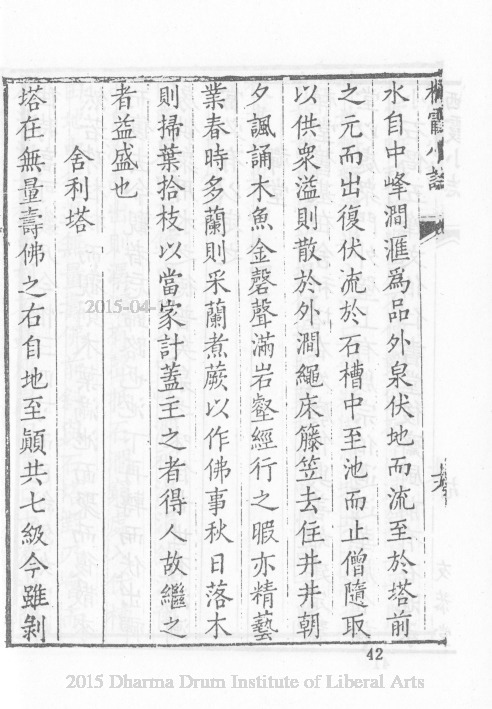 棲霞小誌
水自中峰澗滙爲品外泉伏地而流至於塔前
之元而出復伏流於石槽中至池而止僧隨取
以供衆溢則散於外澗繩床籐笠去住井井朝
夕諷誦木魚金磬聲滿岩壑經行之暇亦精藝
業春時多蘭則采蘭煮蕨以作佛事秋日落木
則掃葉拾枝以當家計蓋主之者得人故繼之
者益盛也
舍利塔
塔在無量壽佛之右自地至顚共七級今雖剝
2015-04-
42
2015 Dharma Drum Institute of Liberal Arts